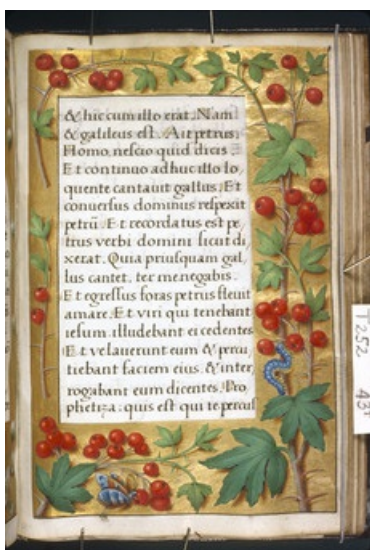 & hic cum illo erat. Nam
& galileus est. Ait petrus.
Homo nescio quid dicis
Et continuo adhuc illo lo,
quente cantauit gallus. Et
conuersus dominus respexit
petrū. Et recordatus est pe,
trus verbi domini sicut di
xerat. Quia priusquam gal,
lus cantet, ter me negabis.
Et egressus foras petrus fleuit
amare. Et viri qui tenebant
iesum. illudebant ei cedentes
Et velauerunt eum & percu,
tiebant faciem eius. & inter,
rogabant eum dicentes. Pro
phetiza: quis est qui te percus
T252 A31